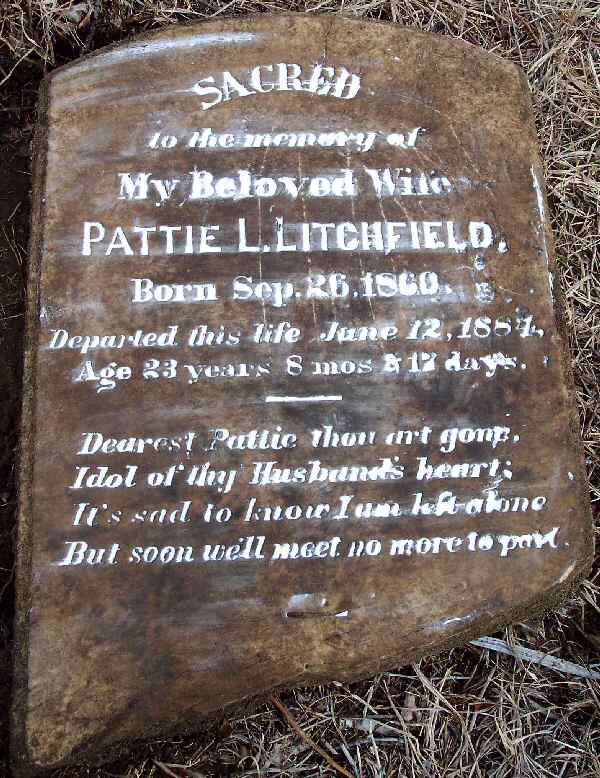 SACRED
to the memory of
My Beloved Wife
PATTIE L. LITCHFIELD,
Born Sep. 26, 1860.
Departed this life June 12, 1884,
Age 23 years 8 mos & 17 days.
Dearest Pattie thou art gone,
Idol of thy Husband's heart;
It's sad to know I am left alone
But soon we'll meet no more to part.